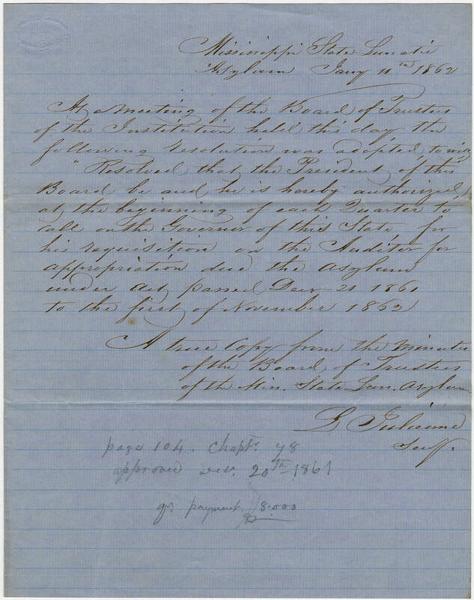 Mississippi State Lunatic
Asylum Jany 11th 1862
At a meeting of the Board of Trustees
of the Institution held this day the
following resolution was adopted, to wit,
"Resolved that the President of this
Board be and he is hereby authorized,
at the beginning of each Quarter to
call on the Governor of this State for
his requisition on the Auditor for
appropriation due the Asylum
under act passed Decr 21 1861
to the first of November 1862
A true Copy from the Minutes
of the Board of Trustees
of the Miss. State Lun. Asylum
Supt.
page 104. Chaptr 48
approved Dec. 20th 1861
qr payment 8.000